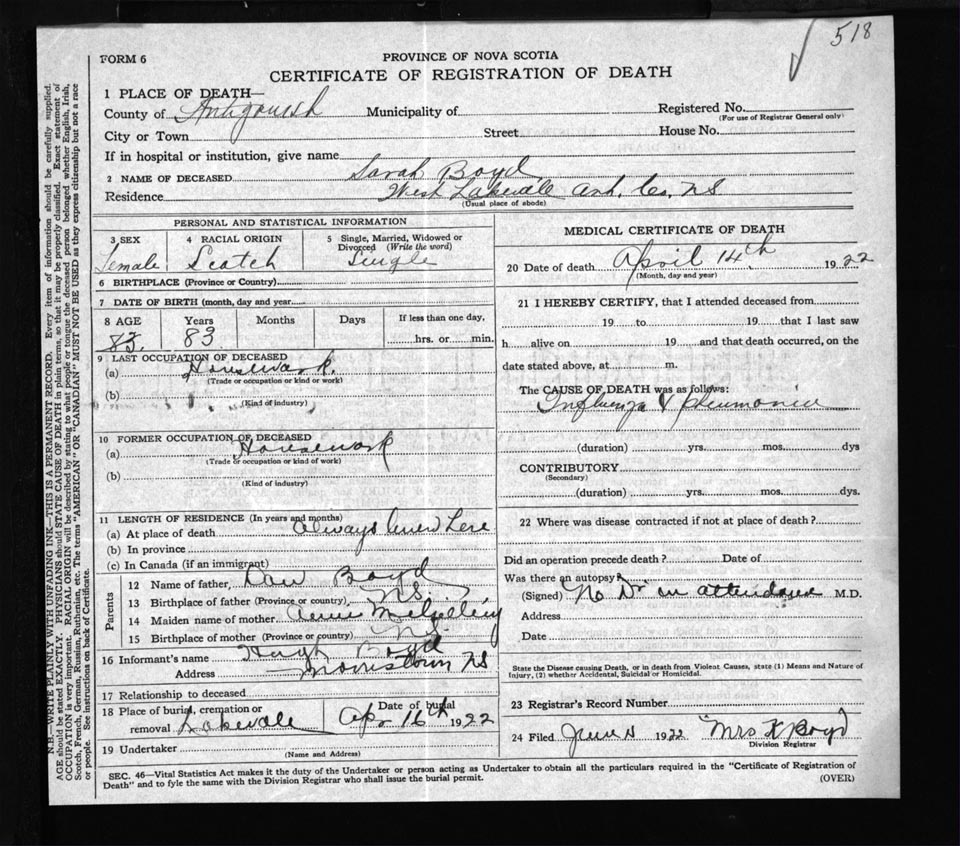 518
FORM 6
PROVINCE OF NOVA SCOTIA
CERTIFICATE OF REGISTRATION OF DEATH
1 PLACE OF DEATH—
County of Antigonish Municipality of Registered No.
(For use of Registrar General only)
City or Town Street House No.
If in hospital or institution, give name
2 NAME OF DECEASED Sarah Boyd
Residence West Lakevale Ant. Co. NS
(Usual place of abode)
PERSONAL AND STATISTICAL INFORMATION
3 SEX 4 RACIAL ORIGIN 5 Single, Married, Widowed or Divorced (Write the word)
Female Scotch Single
6 BIRTHPLACE (Province or Country)
7 DATE OF BIRTH (month, day and year)
8 AGE Years Months Days If less than one day,
83. 83 hrs. or min.
9 LAST OCCUPATION OF DECEASED
(a) Housework.
(Trade or occupation or kind or work)
(b)
(Kind of industry)
10 FORMER OCCUPATION OF DECEASED
(a) Housework
(Trade or occupation or kind of work)
(b)
(Kind of industry)
11 LENGTH OF RESIDENCE (In years and months)
(a) At place of death always lived here
(b) In province
(c) In Canada (if an immigrant)
Parents
12 Name of father, Boyd
13 Birthplace of father (Province or country) NS
14 Maiden name of mother
15 Birthplace of mother (Province or country) NS
16 Informant's name Hugh Boyd
Address Morristown NS
17 Relationship to deceased
18 Place of burial, cremation or removal Lakevale Date of burial Apr 16th 1922
19 Undertaker
(Name and Address)
MEDICAL CERTIFICATE OF DEATH
20 Date of death April 14th 1922
(Month, day and year)
21 I HEREBY CERTIFY, that I attended deceased from
19 to 19 that I last saw
h alive on 19 and that death occurred, on the
date stated above, at m.
The CAUSE OF DEATH was as follows:
Influenza & pneumonia
(duration) yrs. mos. dys
CONTRIBUTORY
(Secondary)
(duration) yrs. mos. dys.
22 Where was disease contracted if not at place of death?
Did an operation precede death? Date of
Was there an autopsy?
(Signed) No Dr in attendance M.D.
Address
Date
State the Disease causing Death, or in death from Violent Causes, state (1) Means and Nature of
Injury, (2) whether Accidental, Suicidal or Homicidal.
23 Registrar's Record Number
24 Filed June 1922 Mrs Boyd
Division Registrar
SEC. 46—Vital Statistics Act makes it the duty of the Undertaker or person acting as Undertaker to obtain all the particulars required in the "Certificate of Registration of
Death" and to fyle the same with the Division Registrar who shall issue the burial permit. (OVER)
N.B.—WRITE PLAINLY WITH UNFADING INK—THIS IS A PERMANENT RECORD. Every item of information should be carefully supplied.
AGE should be stated EXACTLY. PHYSICIANS should STATE CAUSE OF DEATH in plain terms, so that it may be properly classified. Exact statement of
OCCUPATION is very important. RACIAL ORIGIN will be described by stating to what people or tongue the deceased person belonged whether English, Irish,
Scotch, French, German, Russian, Ruthenian, etc. The terms "AMERICAN" OR "CANADIAN" MUST NOT BE USED as they express citizenship but not a race
or people. See instructions on back of Certificate.